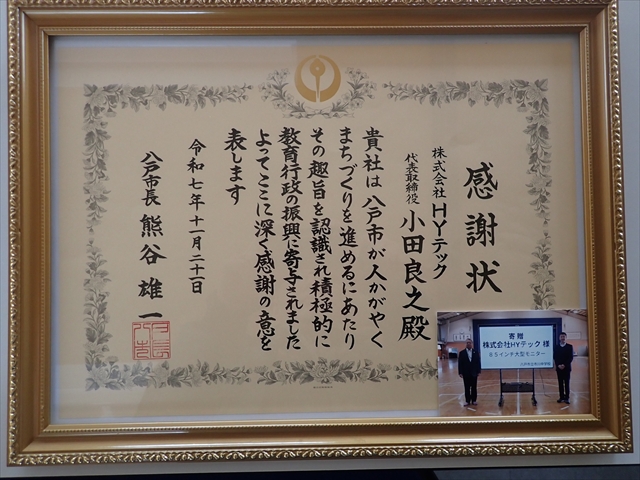 感謝状
株式会社 HYテック
代表取締役 小田良之殿
貴社は八戸市が人かがやく
まちづくりを進めるにあたり
その趣旨を認識され積極的に
教育行政の振興に寄与されました
よってここに深く感謝の意を
表します
令和七年十一月二十一日
八戸市長 熊谷雄一
寄贈
株式会社HYテック 様
85インチ大型モニター